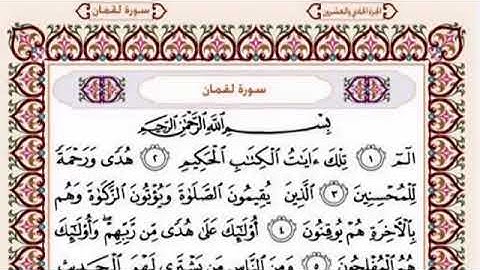 الجزء الحادي والعشرون
سورة لقمان
سورة لقمان
بِسْمِ اللَّهِ الرَّحْمَٰنِ الرَّحِيمِ
الٓمٓ ١ تِلْكَ ءَايَٰتُ الْكِتَٰبِ الْحَكِيمِ ٢ هُدًى وَرَحْمَةً
لِّلْمُحْسِنِينَ ٣ الَّذِينَ يُقِيمُونَ الصَّلَوٰةَ وَيُؤْتُونَ الزَّكَوٰةَ وَهُم
بِالْآخِرَةِ هُمْ يُوقِنُونَ ٤ أُولَٰئِكَ عَلَىٰ هُدًى مِّن رَّبِّهِمْ ۖ وَأُولَٰئِكَ
هُمُ الْمُفْلِحُونَ ٥ وَمِنَ النَّاسِ مَن يَشْتَرِي لَهْوَ الْحَدِيثِ